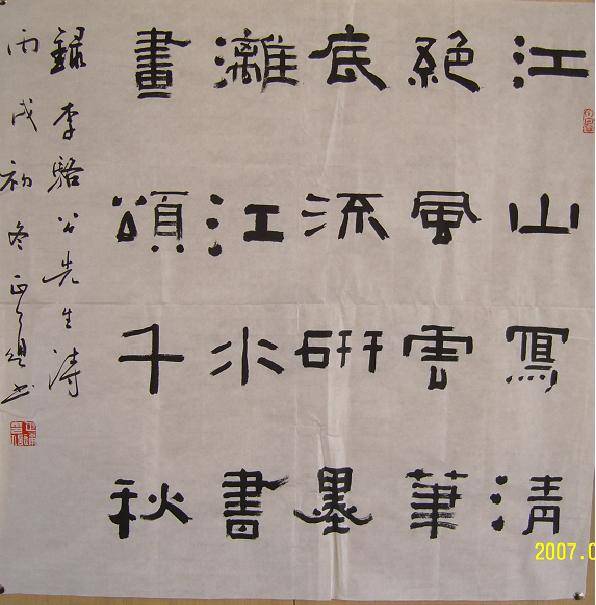 江山寫清
絕風雲筆
底流研墨
漓江水書
畫頌千秋
錄李駱公先生詩
丙戌初冬正书
2007.0